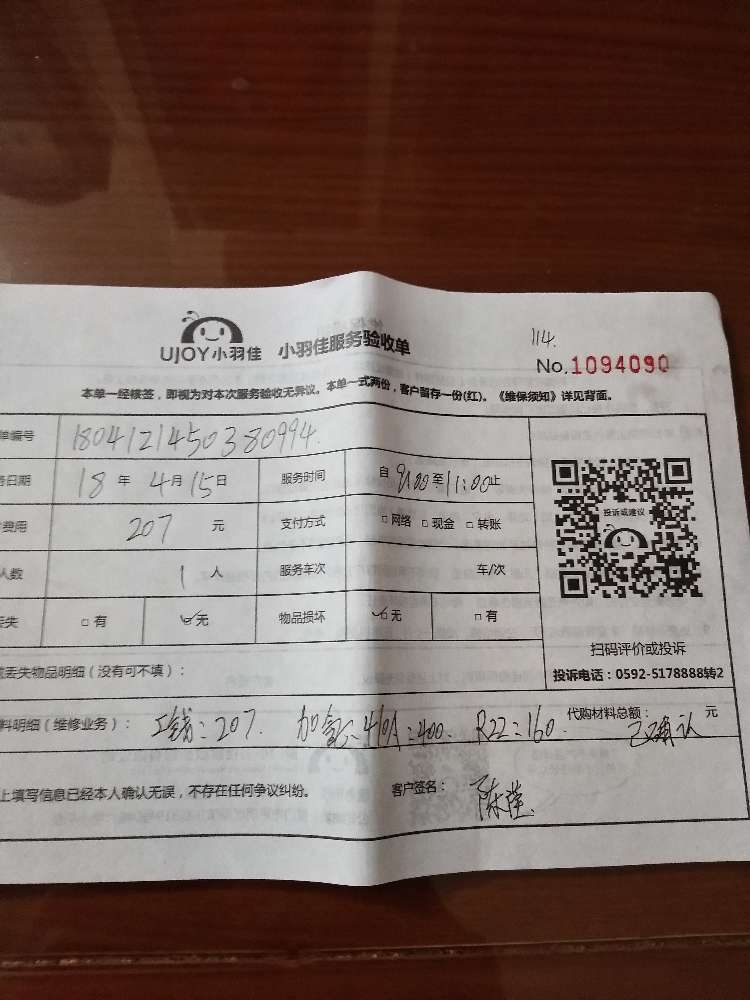 114.
UJOY小羽佳 小羽佳服务验收单
No.1094090
本单一经核签，即视为对本次服务验收无异议。本单一式两份，客户留存一份(红)。《维保须知》详见背面。
单编号 1804121450380994
务日期 18 年 4 月 15 日 服务时间 自 9:00 至 11:00 止
费用 207 元 支付方式 □ 网络 □ 现金 □ 转账
人数 1 人 服务车次 车/次
丢失 □ 有 ☑ 无 物品损坏 ☑ 无 □ 有
投诉或建议
扫码评价或投诉
投诉电话：0592-5178888转2
丢失物品明细（没有可不填）：
料明细（维修业务）： 工钱：207. 加氟：410A：400. R22：160. 代购材料总额： 已确认 元
上填写信息已经本人确认无误，不存在任何争议纠纷。 客户签名： 陈莲